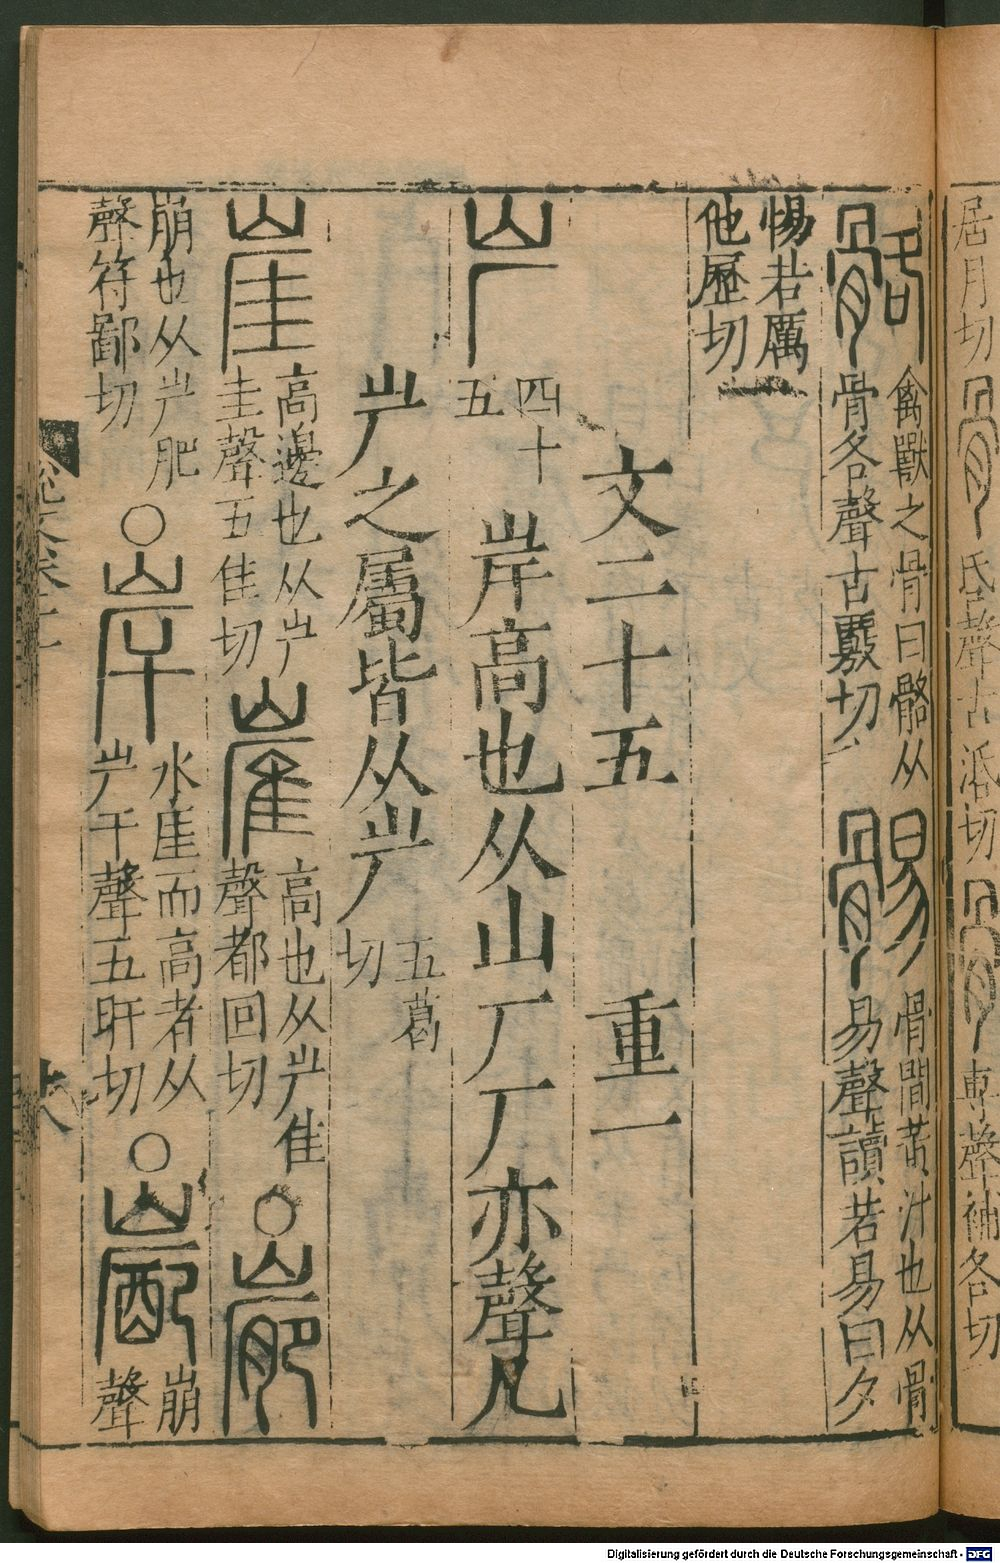 居月切
聲古
尃聲補各切
骼禽獸之骨曰骼从骨各聲古覈切 䯜骨間黃汁也从骨易聲讀若易曰夕
惕若厲他歷切
文二十五 重一
屵四十五 岸高也从山厂厂亦聲凡
屵之屬皆从屵五葛切
崖高邊也从屵圭聲五佳切 高也从屵隹聲都回切○
崩也从屵肥聲符鄙切○岸水厓而高者从屵干聲五旰切○嶏崩聲
Digitalisierung gefördert durch die Deutsche Forschungsgemeinschaft - DFG